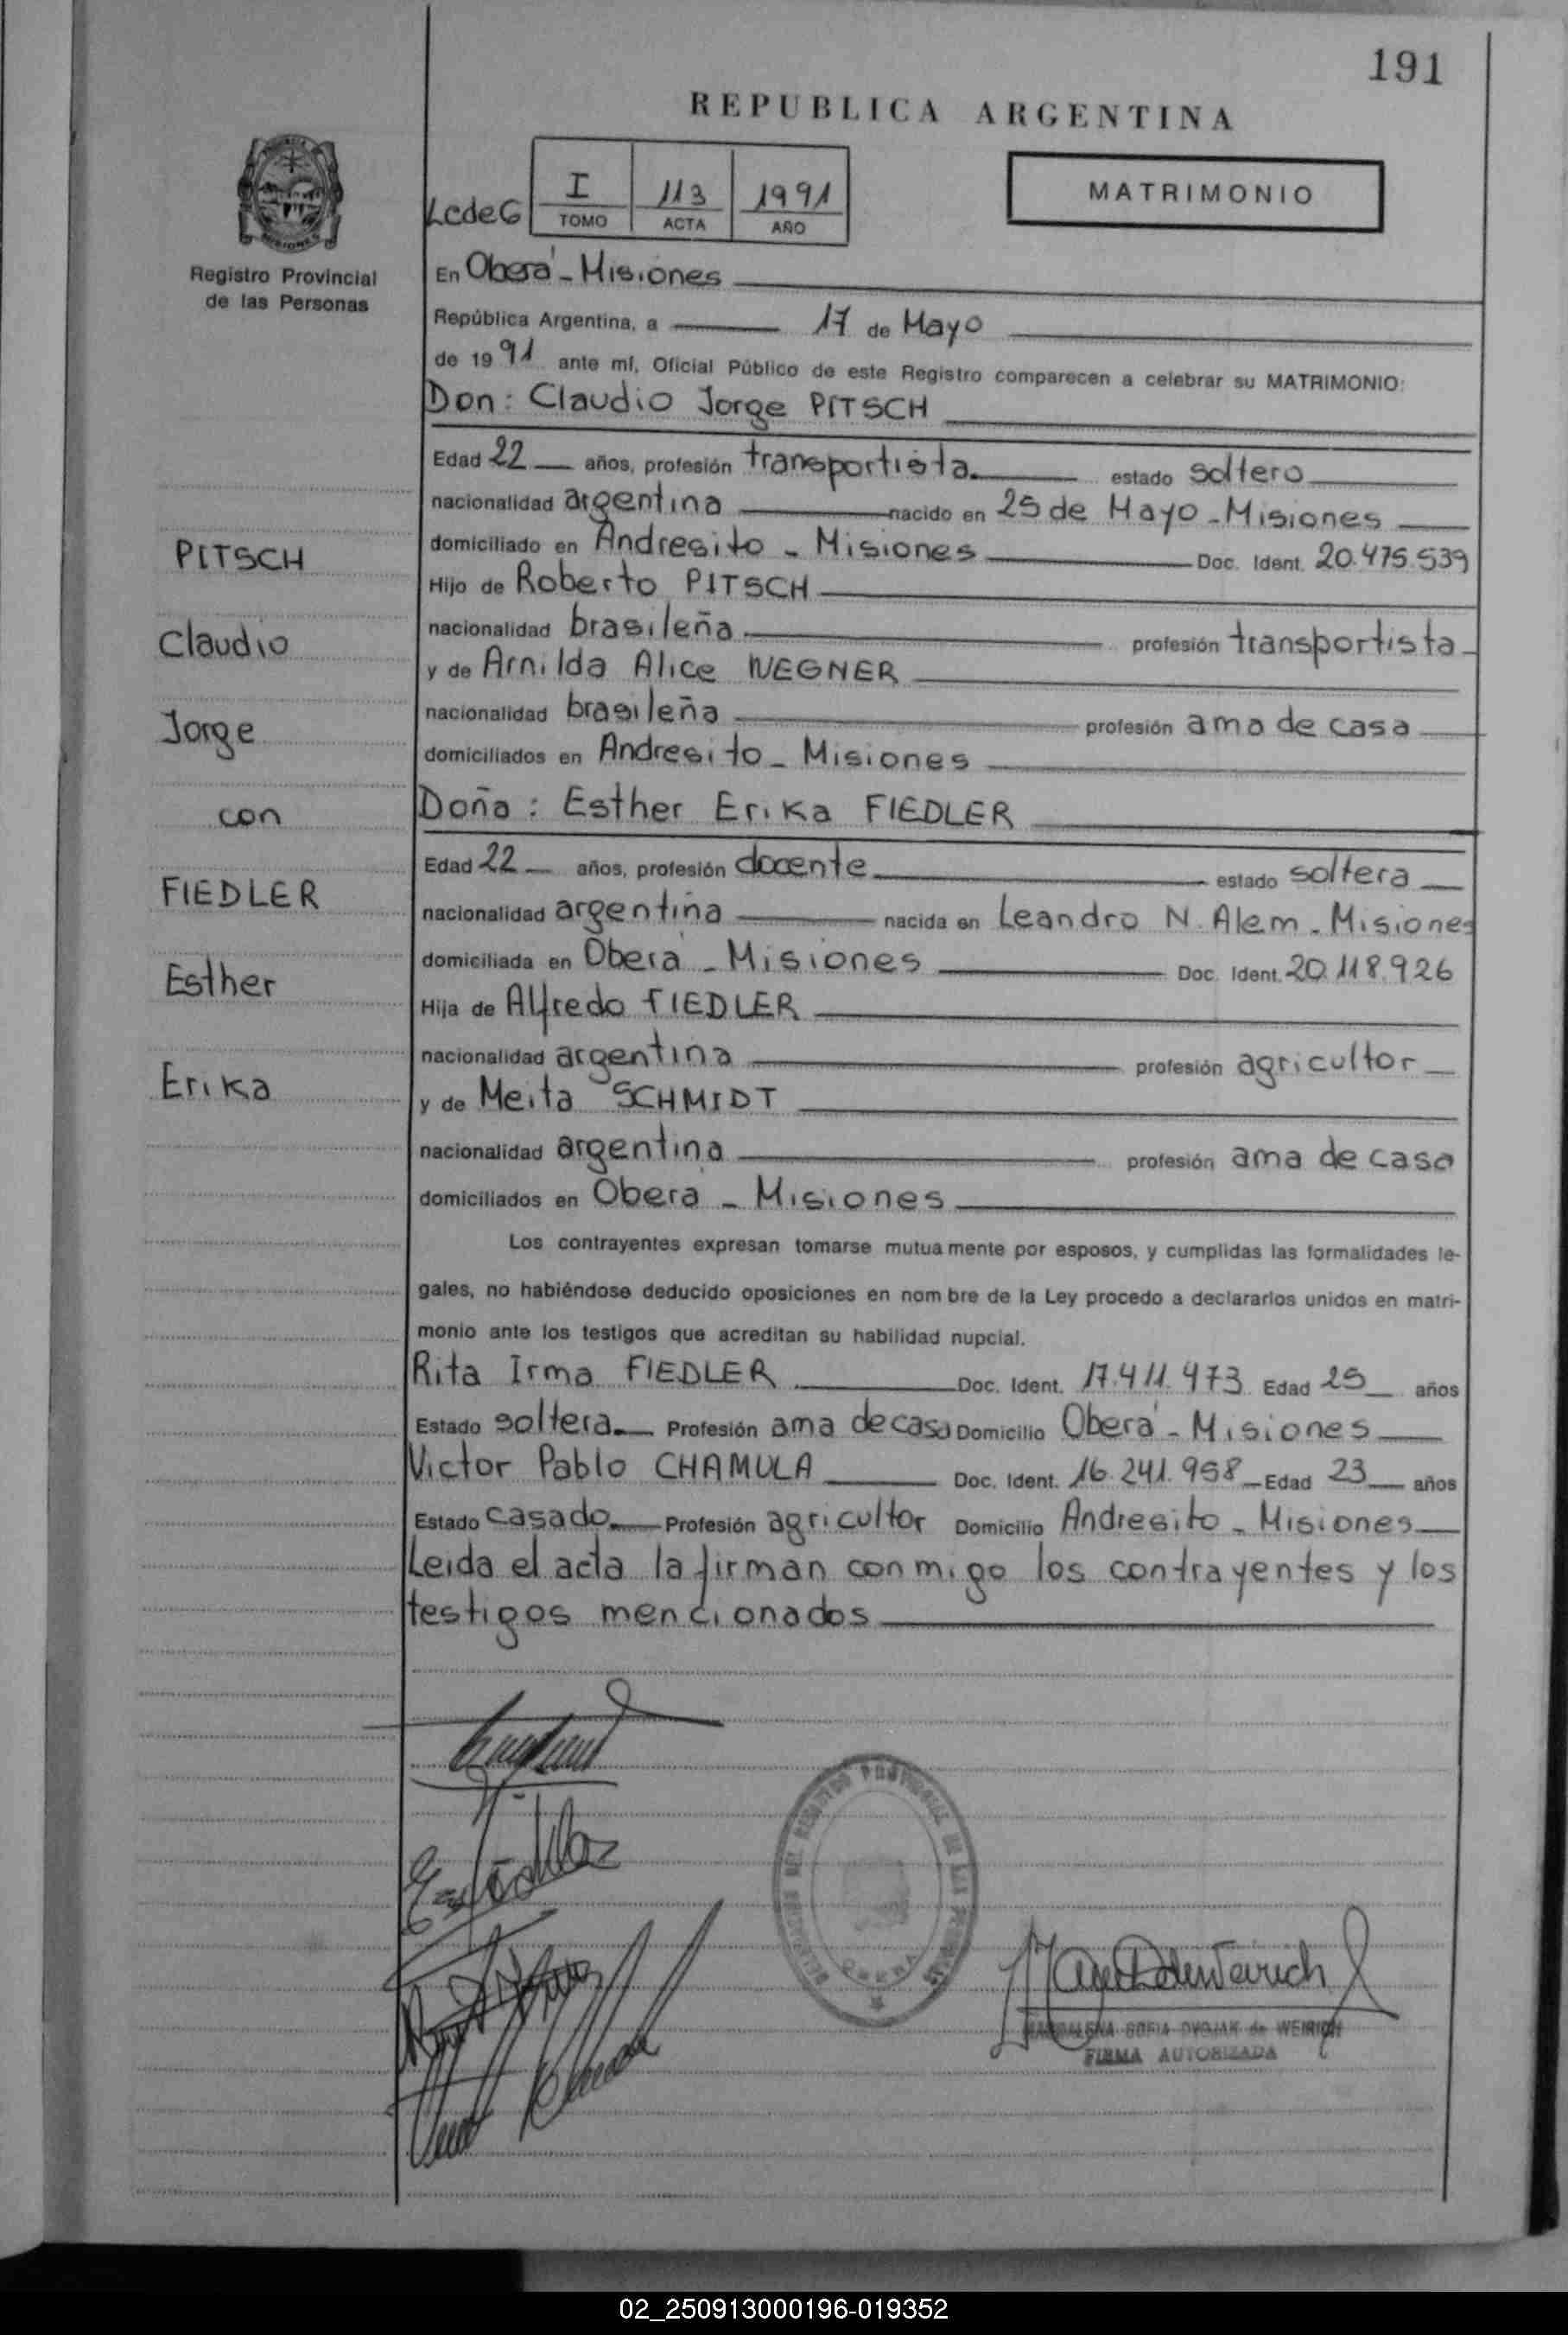 191
REPUBLICA ARGENTINA
MATRIMONIO
LcdeG
I TOMO
113 ACTA
1991 AÑO
Registro Provincial
de las Personas
En Oberá - Misiones
República Argentina, a 17 de Mayo
de 1991 ante mí, Oficial Público de este Registro comparecen a celebrar su MATRIMONIO:
Don: Claudio Jorge PITSCH
Edad 22 años, profesión transportista estado soltero
nacionalidad argentina nacido en 25 de Mayo - Misiones
domiciliado en Andresito - Misiones Doc. Ident. 20.475.539
Hijo de Roberto PITSCH
nacionalidad brasileña profesión transportista
y de Arnilda Alice WEGNER
nacionalidad brasileña profesión ama de casa
domiciliados en Andresito - Misiones
Doña: Esther Erika FIEDLER
Edad 22 años, profesión docente estado soltera
nacionalidad argentina nacida en Leandro N. Alem - Misiones
domiciliada en Oberá - Misiones Doc. Ident. 20.118.926
Hija de Alfredo FIEDLER
nacionalidad argentina profesión agricultor
y de Meita SCHMIDT
nacionalidad argentina profesión ama de casa
domiciliados en Oberá - Misiones
Los contrayentes expresan tomarse mutuamente por esposos, y cumplidas las formalidades le-
gales, no habiéndose deducido oposiciones en nombre de la Ley procedo a declararlos unidos en matri-
monio ante los testigos que acreditan su habilidad nupcial.
Rita Irma FIEDLER Doc. Ident. 17.411.473 Edad 25 años
Estado soltera Profesión ama de casa Domicilio Oberá - Misiones
Victor Pablo CHAMULA Doc. Ident. 16.241.958 Edad 23 años
Estado casado Profesión agricultor Domicilio Andresito - Misiones
Leida el acta la firman conmigo los contrayentes y los
testigos mencionados
PITSCH
Claudio
Jorge
con
FIEDLER
Esther
Erika
MAGDALENA SOFIA DVOJAK de WEIRICH
FIRMA AUTORIZADA
02_250913000196-019352